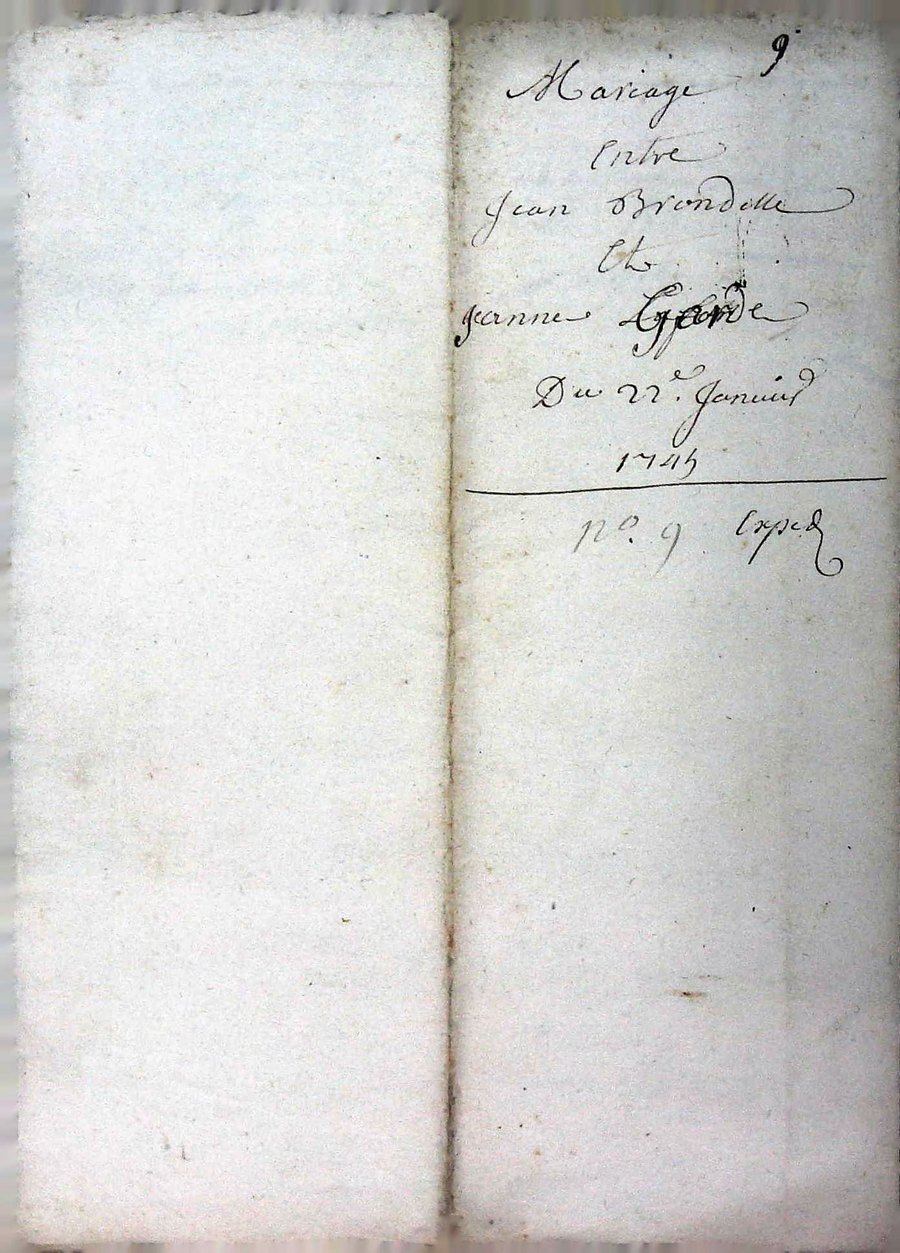 9
Mariage
Entre
Jean Brondelle
Et
Jeanne
Du 22e. Januier
1745
no. 9 Exped